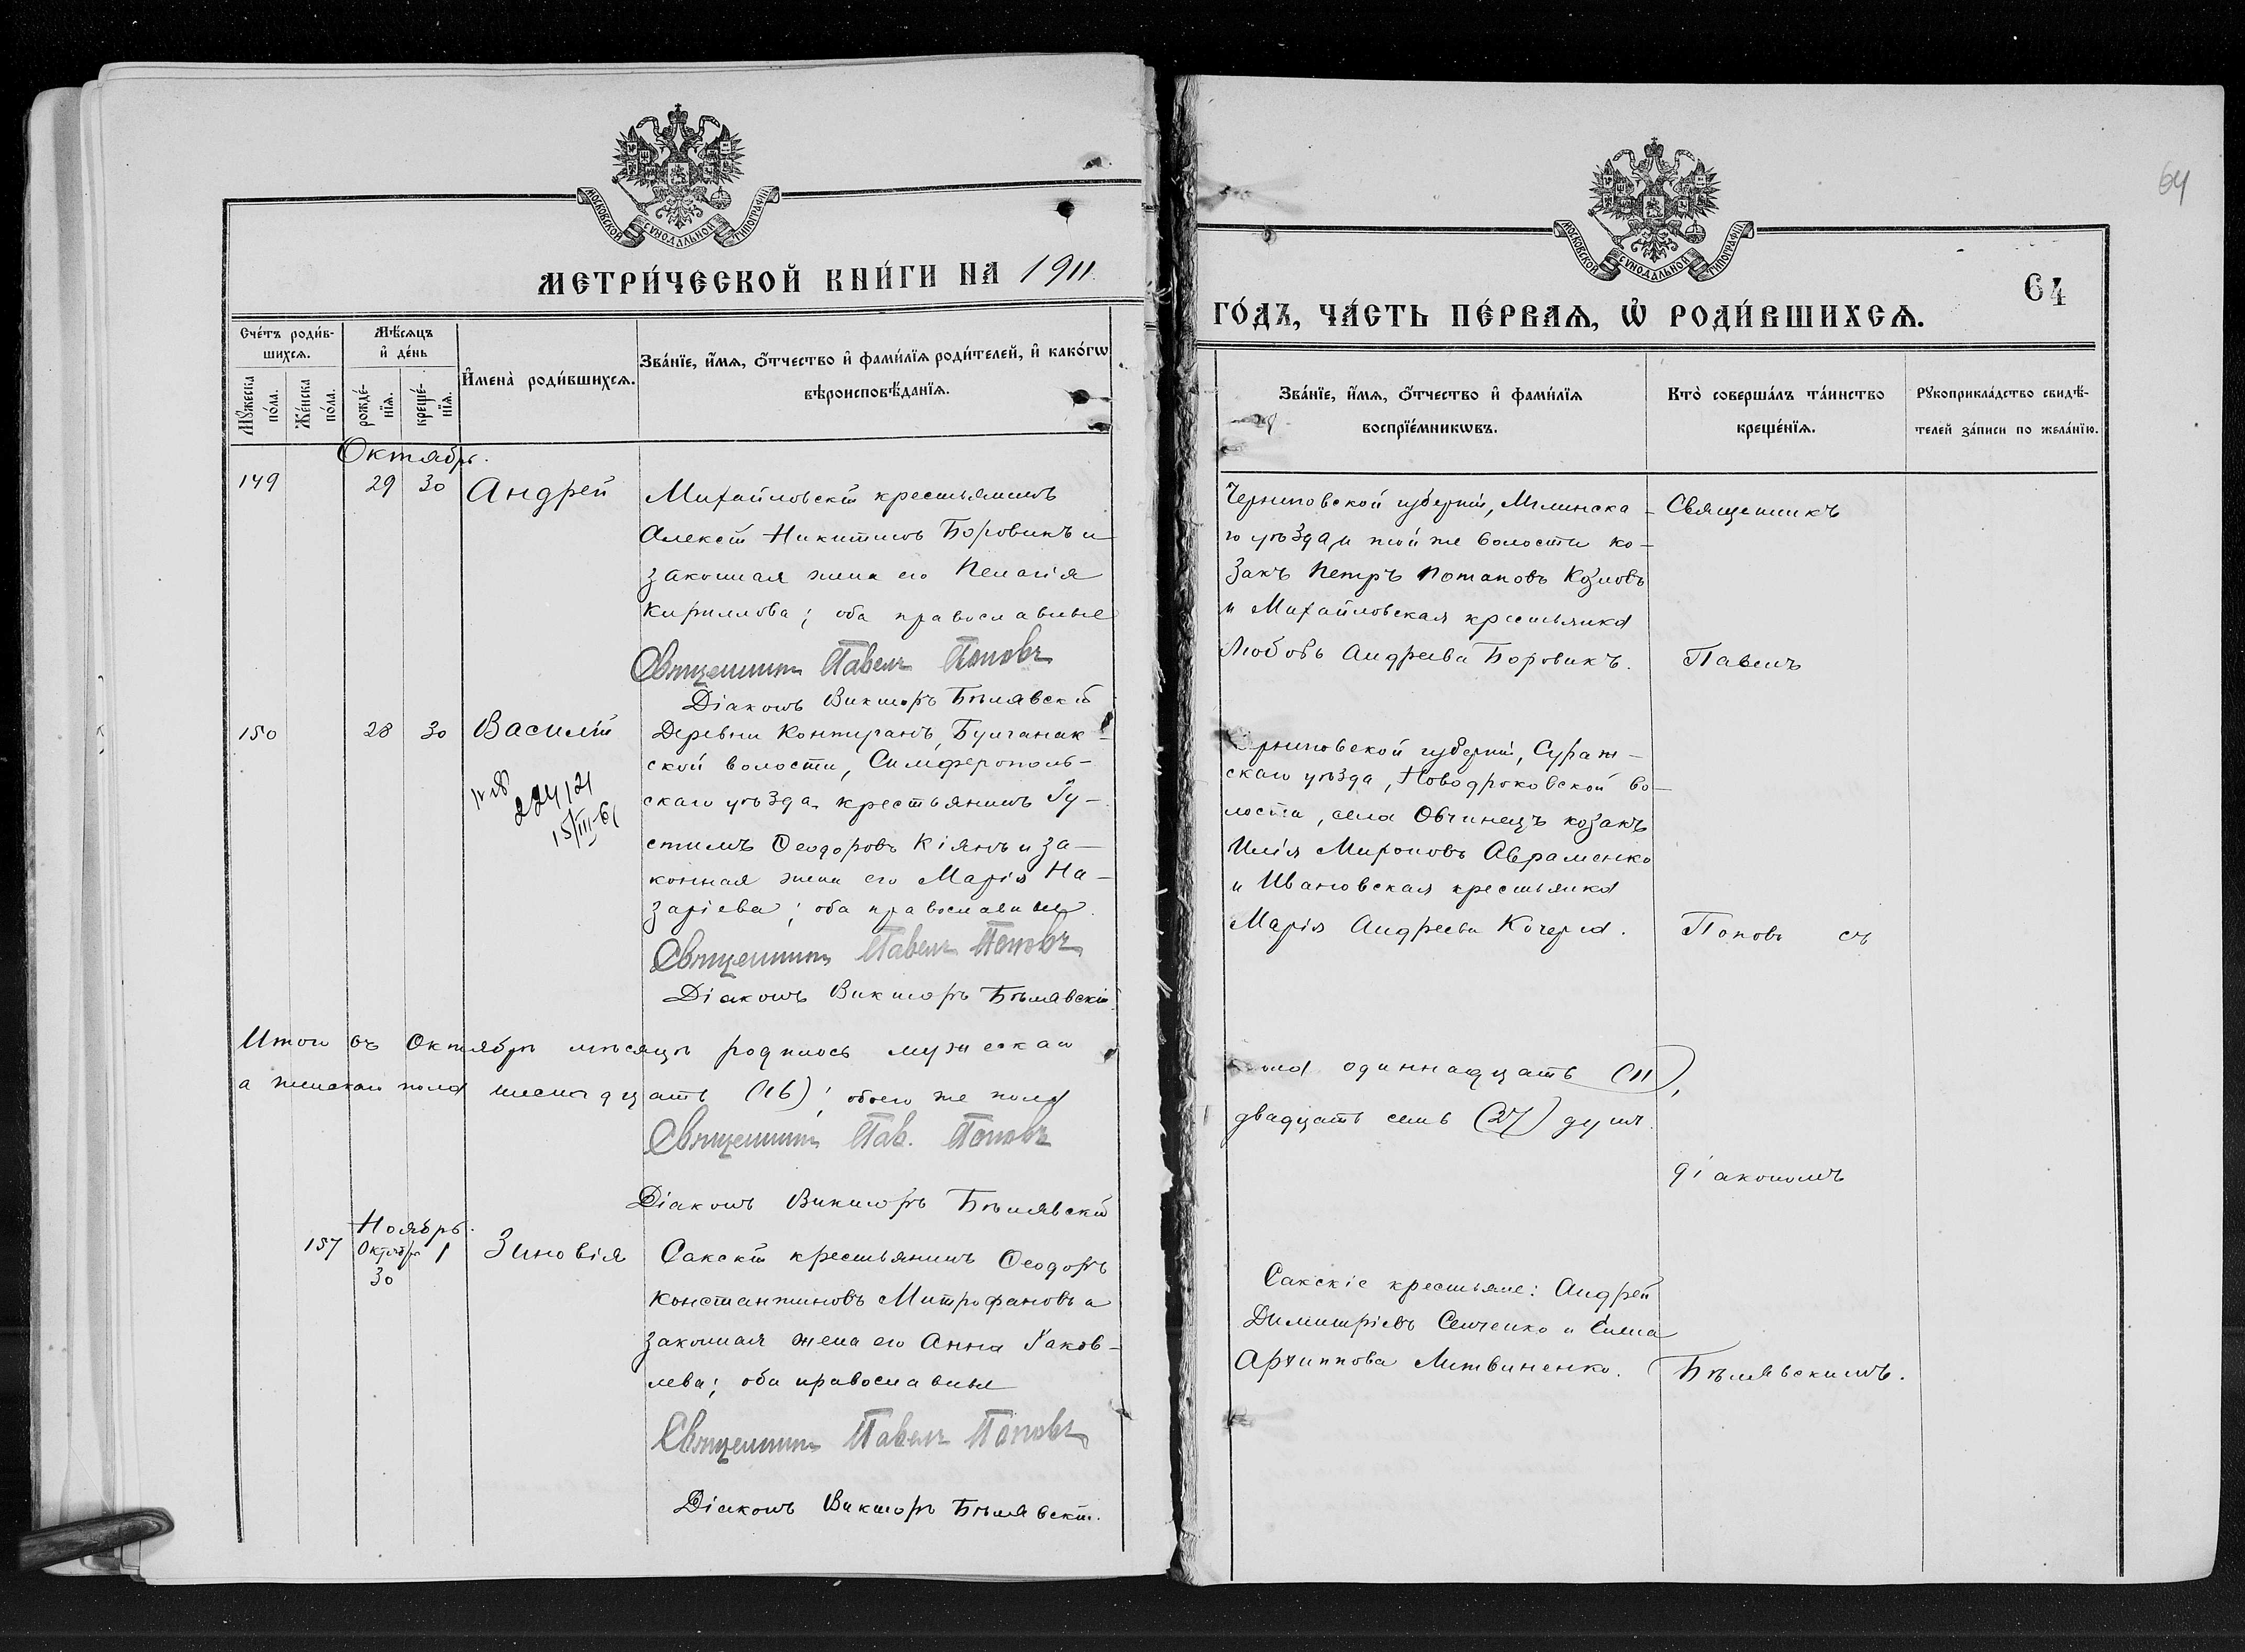 МОСКОВСКОЙ СУНОДАЛЬНОЙ ТИПОГРАФІИ
МЕТРИ́ЧЕСКОЙ КНИ́ГИ НА 1911
Сче́тъ роди́в-
шихсѧ.
Мѣ́сѧцъ
и҆ де́нь
Мꙋ́жеска
по́ла.
Же́нска
по́ла.
рожде́-
нїѧ.
креще́-
нїѧ.
И҆мена̀ роди́вшихсѧ.
Зва́нїе, и҆́мѧ, ѻ҆́тчество и҆ фами́лїѧ роди́телей, и҆ како́гѡ
вѣроисповѣ́данїѧ.
Октябрь.
149 29 30 Андрей
Михайловскій крестьянинъ
Алексѣй Никитинъ Боровикъ и
законная жена его Пелагія
Кириллова; оба православные
Священникъ Павелъ Поповъ
Діаконъ Викторъ Бѣлявскій
150 28 30 Василій
Деревни Контуганъ, Булганак-
ской волости, Симферополь-
скаго уѣзда крестьянинъ Іу-
стинъ Ѳеодоровъ Кіянъ и за-
конная жена его Марія На-
заріева; оба православные
Священникъ Павелъ Поповъ
Діаконъ Викторъ Бѣлявскій
224121
15/III-61
Итого въ Октябрѣ мѣсяцѣ родилось мужескаго
а женскаго пола шестнадцать (16); обоего же пола
Священникъ Пав. Поповъ
Діаконъ Викторъ Бѣлявскій
Ноябрь.
157 Октября 30 1 Зиновія
Сакскій крестьянинъ Ѳеодоръ
Константиновъ Митрофановъ и
законная жена его Анна Іаков-
лева; оба православные
Священникъ Павелъ Поповъ
Діаконъ Викторъ Бѣлявскій.
64
МОСКОВСКОЙ СУНОДАЛЬНОЙ ТИПОГРАФІИ
64
ГО́ДЪ, ЧА́СТЬ ПЕ́РВАѦ, Ѡ҆ РОДИ́ВШИХСѦ.
Зва́нїе, и҆́мѧ, ѻ҆́тчество и҆ фами́лїѧ
воспрїе́мникѡвъ.
Кто̀ соверша́лъ та́инство
креще́нїѧ.
Рꙋкоприкла́дство свидѣ́-
телей за́писи по жела́нїю.
Черниговской губерніи, Мглинска-
го уѣзда и той же волости ко-
закъ Петръ Потаповъ Козловъ
и Михайловская крестьянка
Любовь Андреева Боровикъ.
Священникъ
Павелъ
Черниговской губерніи, Сураж-
скаго уѣзда, Новодроковской во-
лости, села Овчинецъ козакъ
Илія Мироновъ Авраменко
и Ивановская крестьянка
Марія Андреева Кочерга.
Поповъ съ
пола одиннадцать (11),
двадцать семь (27) душъ.
діакономъ
Сакскіе крестьяне: Андрей
Димитріевъ Сенченко и Елена
Архиппова Литвиненко.
Бѣлявскимъ.